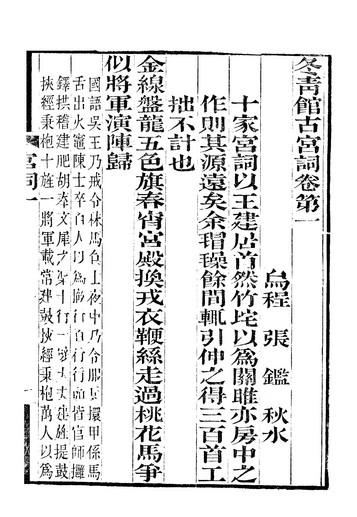 冬青館古宮詞卷第一
烏程 張 鑑 秋水
十家宮詞以王建居首然竹垞以為關雎亦房中之
作則其源遠矣余瑁璪餘間輒引伸之得三百首工
拙不計也
金線盤龍五色旗春宵宮殿換戎衣鞭絲走過桃花馬爭
似將軍演陣歸
國語吳王乃戒令秣馬食士夜中乃令服兵擐甲係馬
舌出火竈陳士卒百人以為徹行百行行頭皆官師擁
鐸拱稽建肥胡奉文犀之渠十行一嬖大夫建旌提鼓
挾經秉枹十旌一將軍載常建鼓挾經秉枹萬人以為
宮詞一